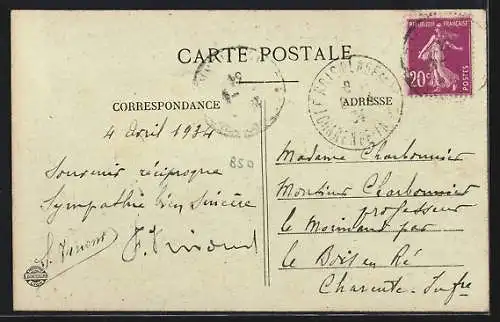 CARTE POSTALE
CORRESPONDANCE
4 avril 1934
Souvenir réciproque
Sympathie bien sincère
850
ADRESSE
Madame Charbonnier
Monsieur Charbonnier
professeur
le par
le Bois en Ré
Charente-Infre
FRANÇAISE
20c
POSTES